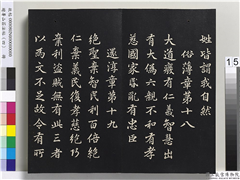 姓皆謂我自然
俗薄章第十八
大道廢有仁義智慧出
有大偽六親不和有孝
慈國家昏亂有忠臣
還淳章第十九
絕聖棄智民利百倍絕
仁棄義民復孝慈絕巧
棄利盜賊無有此三者
以為文不足故令有所
15